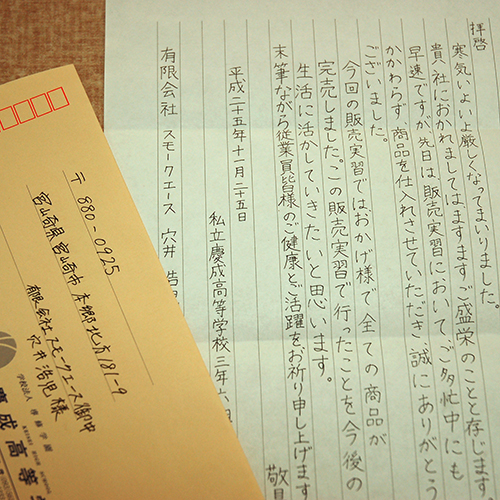 拝啓
寒気いよいよ厳しくなってまいりました。
貴社におかれましてはますますご盛栄のことと存じます。
早速ですが先日は販売実習において、ご多忙中にも
かかわらず商品を仕入れさせていただき、誠にありがとう
ございました。
今回の販売実習ではおかげ様で全ての商品が
完売しました。この販売実習で行ったことを今後の
生活に活かしていきたいと思います。
末筆ながら従業員皆様のご健康とご活躍をお祈り申し上げます
敬具
平成二十五年十一月二十五日
私立慶成高等学校三年六
有限会社 スモークエース 穴井 浩
〒880-0925
宮崎県宮崎市本郷北方181-9
有限会社スモークエース御中
穴井浩児様
学校法人 専修学園
慶成高等